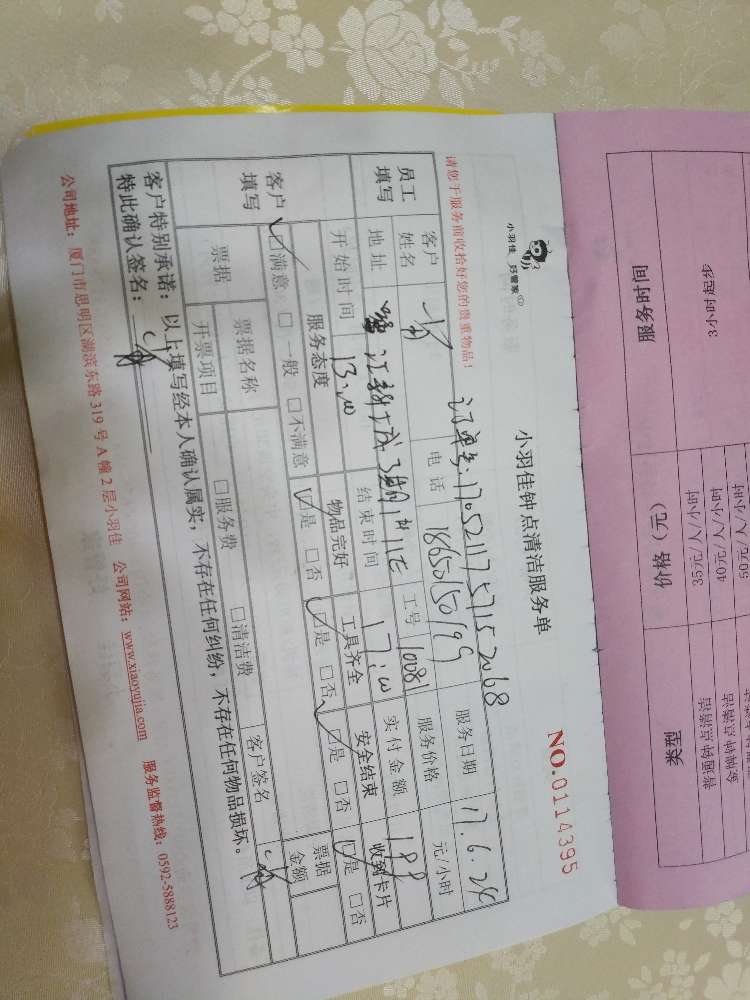 小羽佳 好管家
小羽佳钟点清洁服务单
NO.0114395
请您于服务前收拾好您的贵重物品!
订单号:1705211757152068
员工填写
客户姓名
电话 18650150199
服务日期 17.6.24
地址
工号 10081
服务价格 元/小时
开始时间 13:00
结束时间 17:00
实付金额 188
客户填写
服务态度 物品完好 工具齐全 安全结束 收到卡片
☑满意 □一般 □不满意 ☑是 □否 ☑是 □否 ☑是 □否 ☑是 □否
票据 票据名称 客户签名 票据金额
开票项目 □服务费 □清洁费
客户特别承诺:以上填写经本人确认属实,不存在任何纠纷,不存在任何物品损坏。
特此确认签名:
公司地址:厦门市思明区湖滨东路319号A幢2层小羽佳 公司网站:www.xiaoyujia.com 服务监督热线:0592-5888123
服务时间 价格(元) 类型
3小时起步
35元/人/小时 普通钟点清洁
40元/人/小时 金牌钟点清洁
50元/人/小时